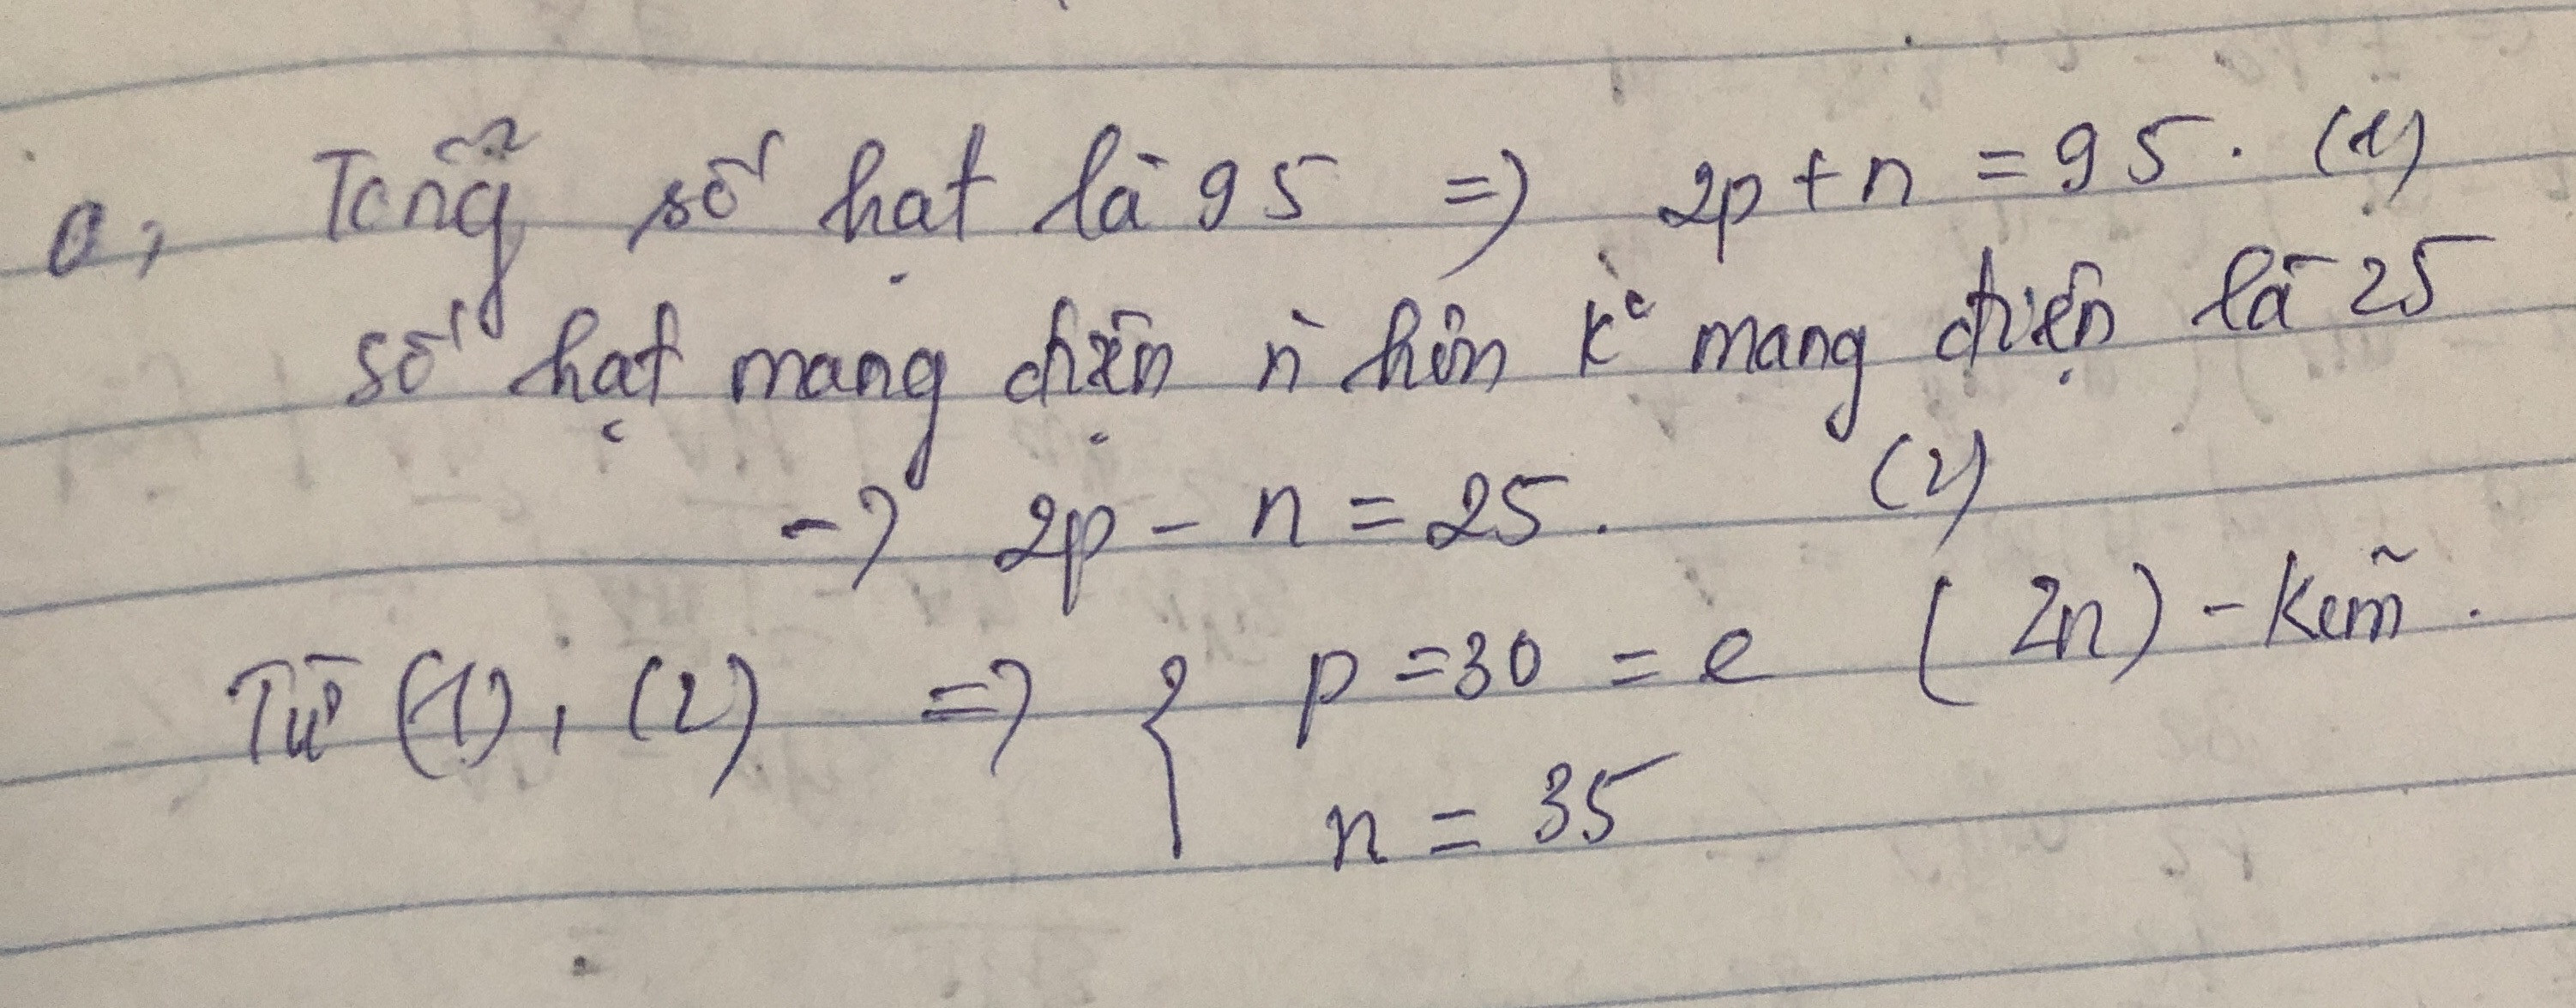 a, Tổng số hạt là 95 => 2p + n = 95. (1)
số hạt mang điện n` hơn k° mang điện là 25
-> 2p - n = 25. (2)
Từ (1), (2) => { p = 30 = e (Zn) - Kẽm.
n = 35